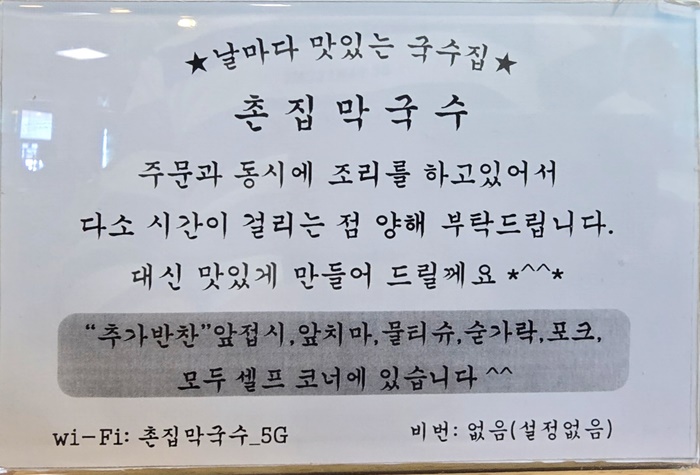 ★날마다 맛있는 국수집★
촌집막국수
주문과 동시에 조리를 하고있어서
다소 시간이 걸리는 점 양해 부탁드립니다.
대신 맛있게 만들어 드릴께요 *^^*
“추가반찬”앞접시,앞치마,물티슈,숟가락,포크,
모두 셀프 코너에 있습니다 ^^
Wi-Fi: 촌집막국수_5G 비번: 없음(설정없음)